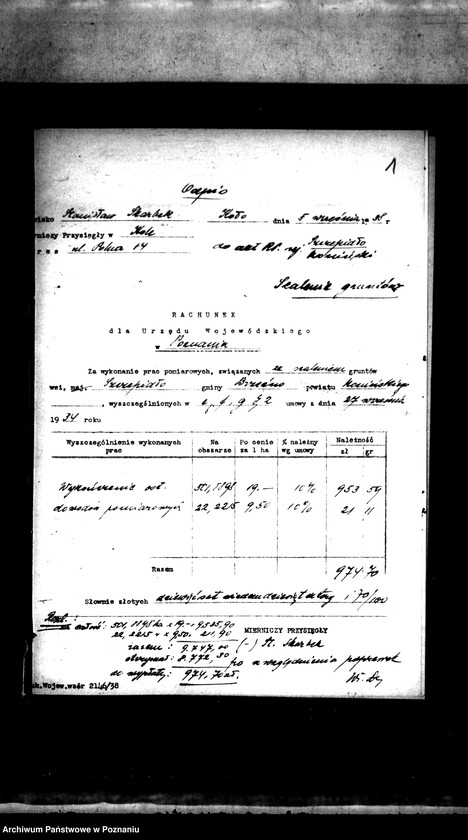 1
Odpis
isko Stanisław Skarbek Koło dnia 5 września 38 r
rniczy Przysięgły w Kole
r e s ul. Polna 14 do akt
Szczepidło
koniński
Scalenie gruntów
RACHUNEK
dla Urzędu Wojewódzkiego
w Poznaniu
Za wykonanie prac pomiarowych, związanych ze scaleniem gruntów
wsi, maj. Szczepidło gminy Brzeźno powiatu konińskiego
, wyszczególnionych w umowy z dnia 27 wrzesień
1934 roku
Wyszczególnienie wykonanych prac Na obszarze Po cenie za 1 ha % należny wg umowy Należność zł gr
Wykończenie 501,1195 19.— 10% 953 59
dowodów pomiarowych 22,2215 9,50 10% 21 11
Razem 974 70
Słownie złotych dziewięćset siedemdziesiąt cztery i 70/100
całość: 501,1195 ha x 19.- 9525,90
22,2215 x 9,50. 211,90
MIERNICZY PRZYSIĘGŁY
razem: 9.747,00 (-) St. Skarbek
otrzymał: 8.772,30 po uwzględnieniu poprawek
do wypłaty: 974,70 zł.
uk.Wojew.wzór 21/6/38
Archiwum Państwowe w Poznaniu